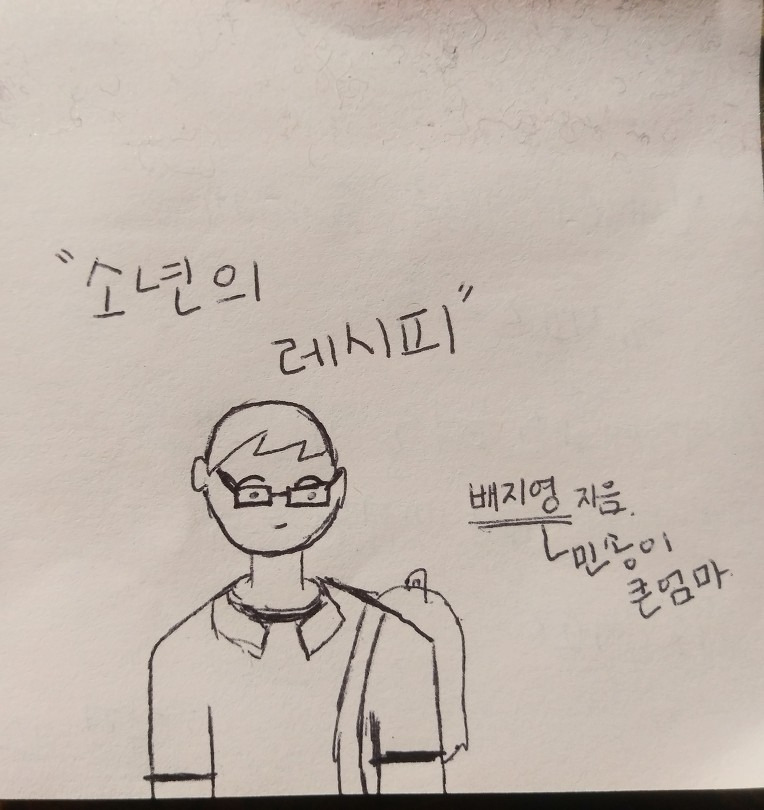 "소년의
레시피"
배지영 지음.
민공이
큰엄마.